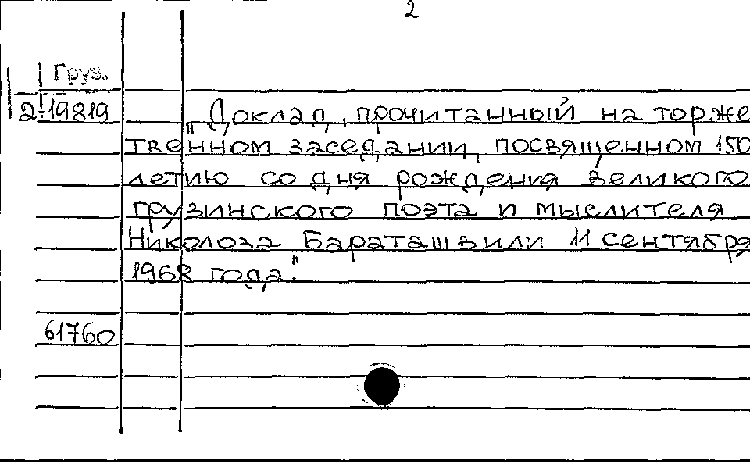 2
Груз.
2-19819
"Доклад, прочитанный на торже
твенном заседании, посвященном 150
летию со дня рождения великого
грузинского поэта и мыслителя
Николоза Бараташвили 11 сентября
1968 года."
61760